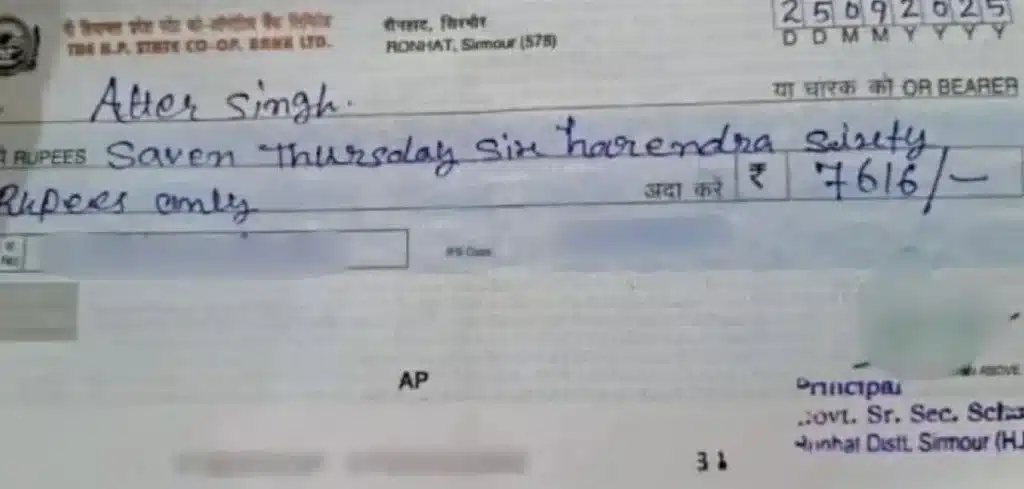 दी हिमाचल प्रदेश स्टेट को-ओपरेटिव बैंक लिमिटेड
THE H.P. STATE CO-OP. BANK LTD.
रोनहाट, सिरमौर
RONHAT, Sirmour (578)
25092025
D D M M Y Y Y Y
Atter Singh.
या धारक को OR BEARER
RUPEES Saven Thursday Six harendra Sixty
Rupees only
अदा करें ₹ 7616/-
IFS Code
ABOVE
AP
Principal
Govt. Sr. Sec.
Ronhat Distt. Sirmour
31